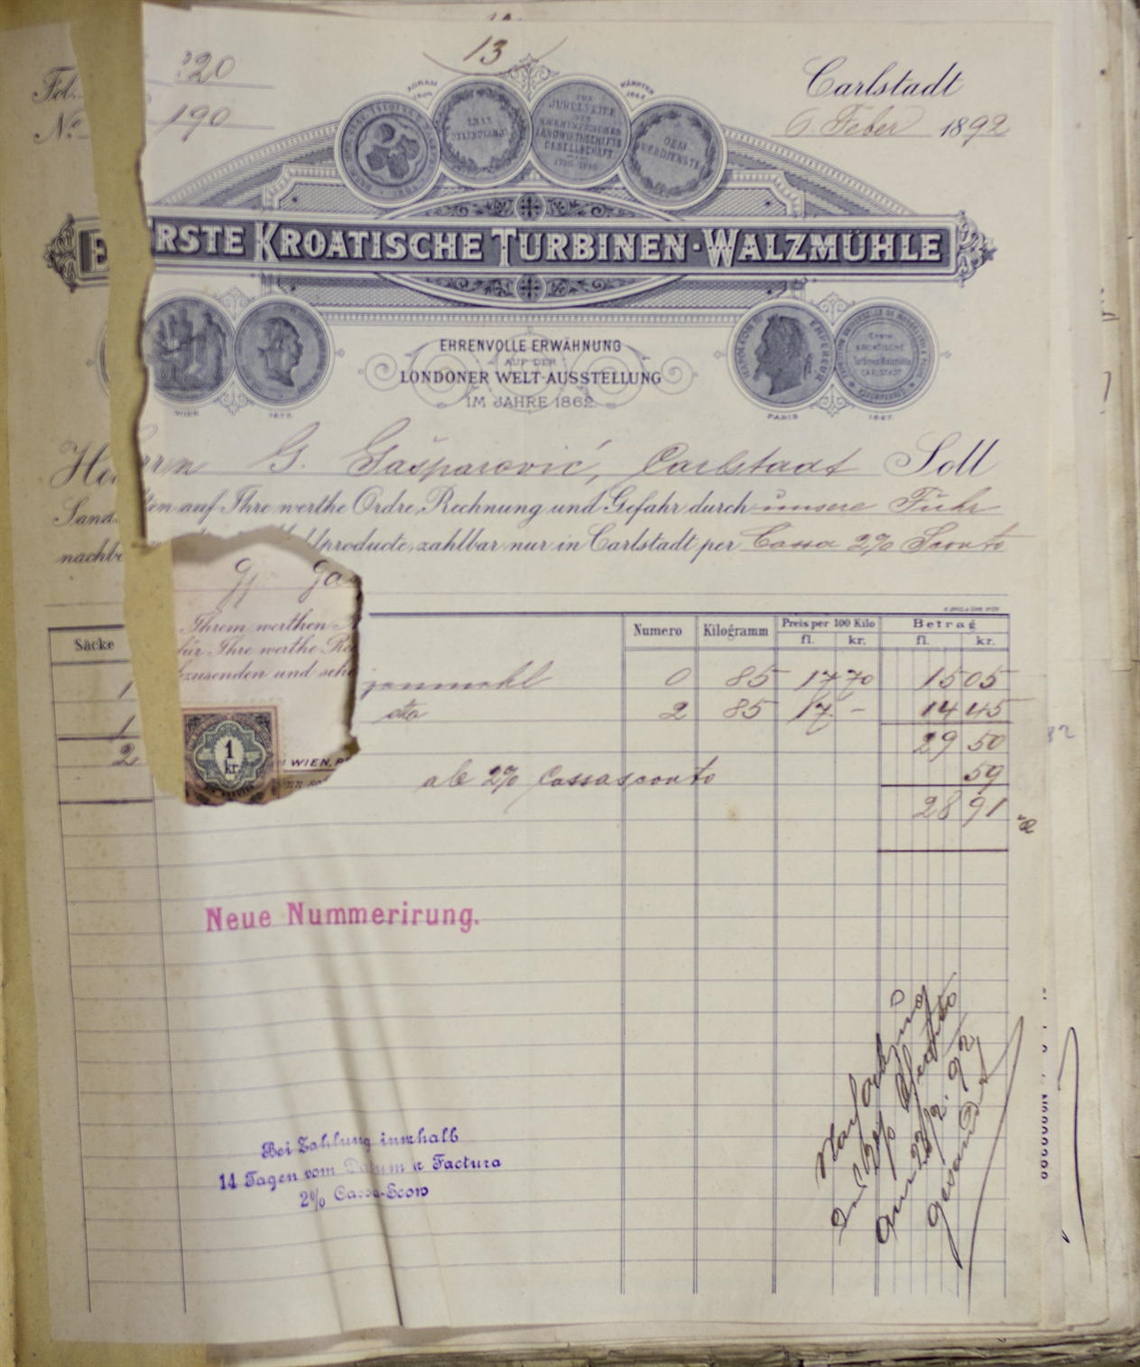 13
Fol. 320
No. 190
Carlstadt
6 Feber 1892
AGRAM
KÄRNTEN
ERSTE KROATISCHE TURBINEN-WALZMÜHLE
EHRENVOLLE ERWÄHNUNG
AUF DER
LONDONER WELT-AUSSTELLUNG
IM JAHRE 1862
WIEN 1873.
PARIS 1867.
NAPOLEON III EMPEREUR
ERSTE KROATISCHE Turbinen Walzmühle CARLSTADT
Herrn G. Gašparović, Carlstadt Soll
Sand ten auf Ihre werthe Ordre, Rechnung und Gefahr durch unsere Fuhr
nachb lproducte, zahlbar nur in Carlstadt per Cassa 2% Sconto
G. Ga
Ihrem werthen
für Ihre werthe Re
zusenden und
Säcke Numero Kilogramm Preis per 100 Kilo fl. kr. Betrag fl. kr.
1 0 85 17 70 15 05
1 2 85 17 - 14 45
2 29 50
ab 2% Cassasconto 59
28 91
1 kr.
WIEN,
Neue Nummerirung.
Bei Zahlung innerhalb
14 Tagen vom Datum Factura
2% Cassa-Scon
2% Sconto
am 22/2. 92